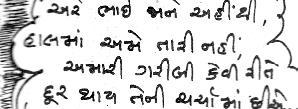 અરે ભાઈ જાને અહીંથી,
હાલમાં અમે તારી નહીં,
અમારી ગરીબી કેવી રીતે
દૂર થાય તેની ચર્ચામાં છીએ